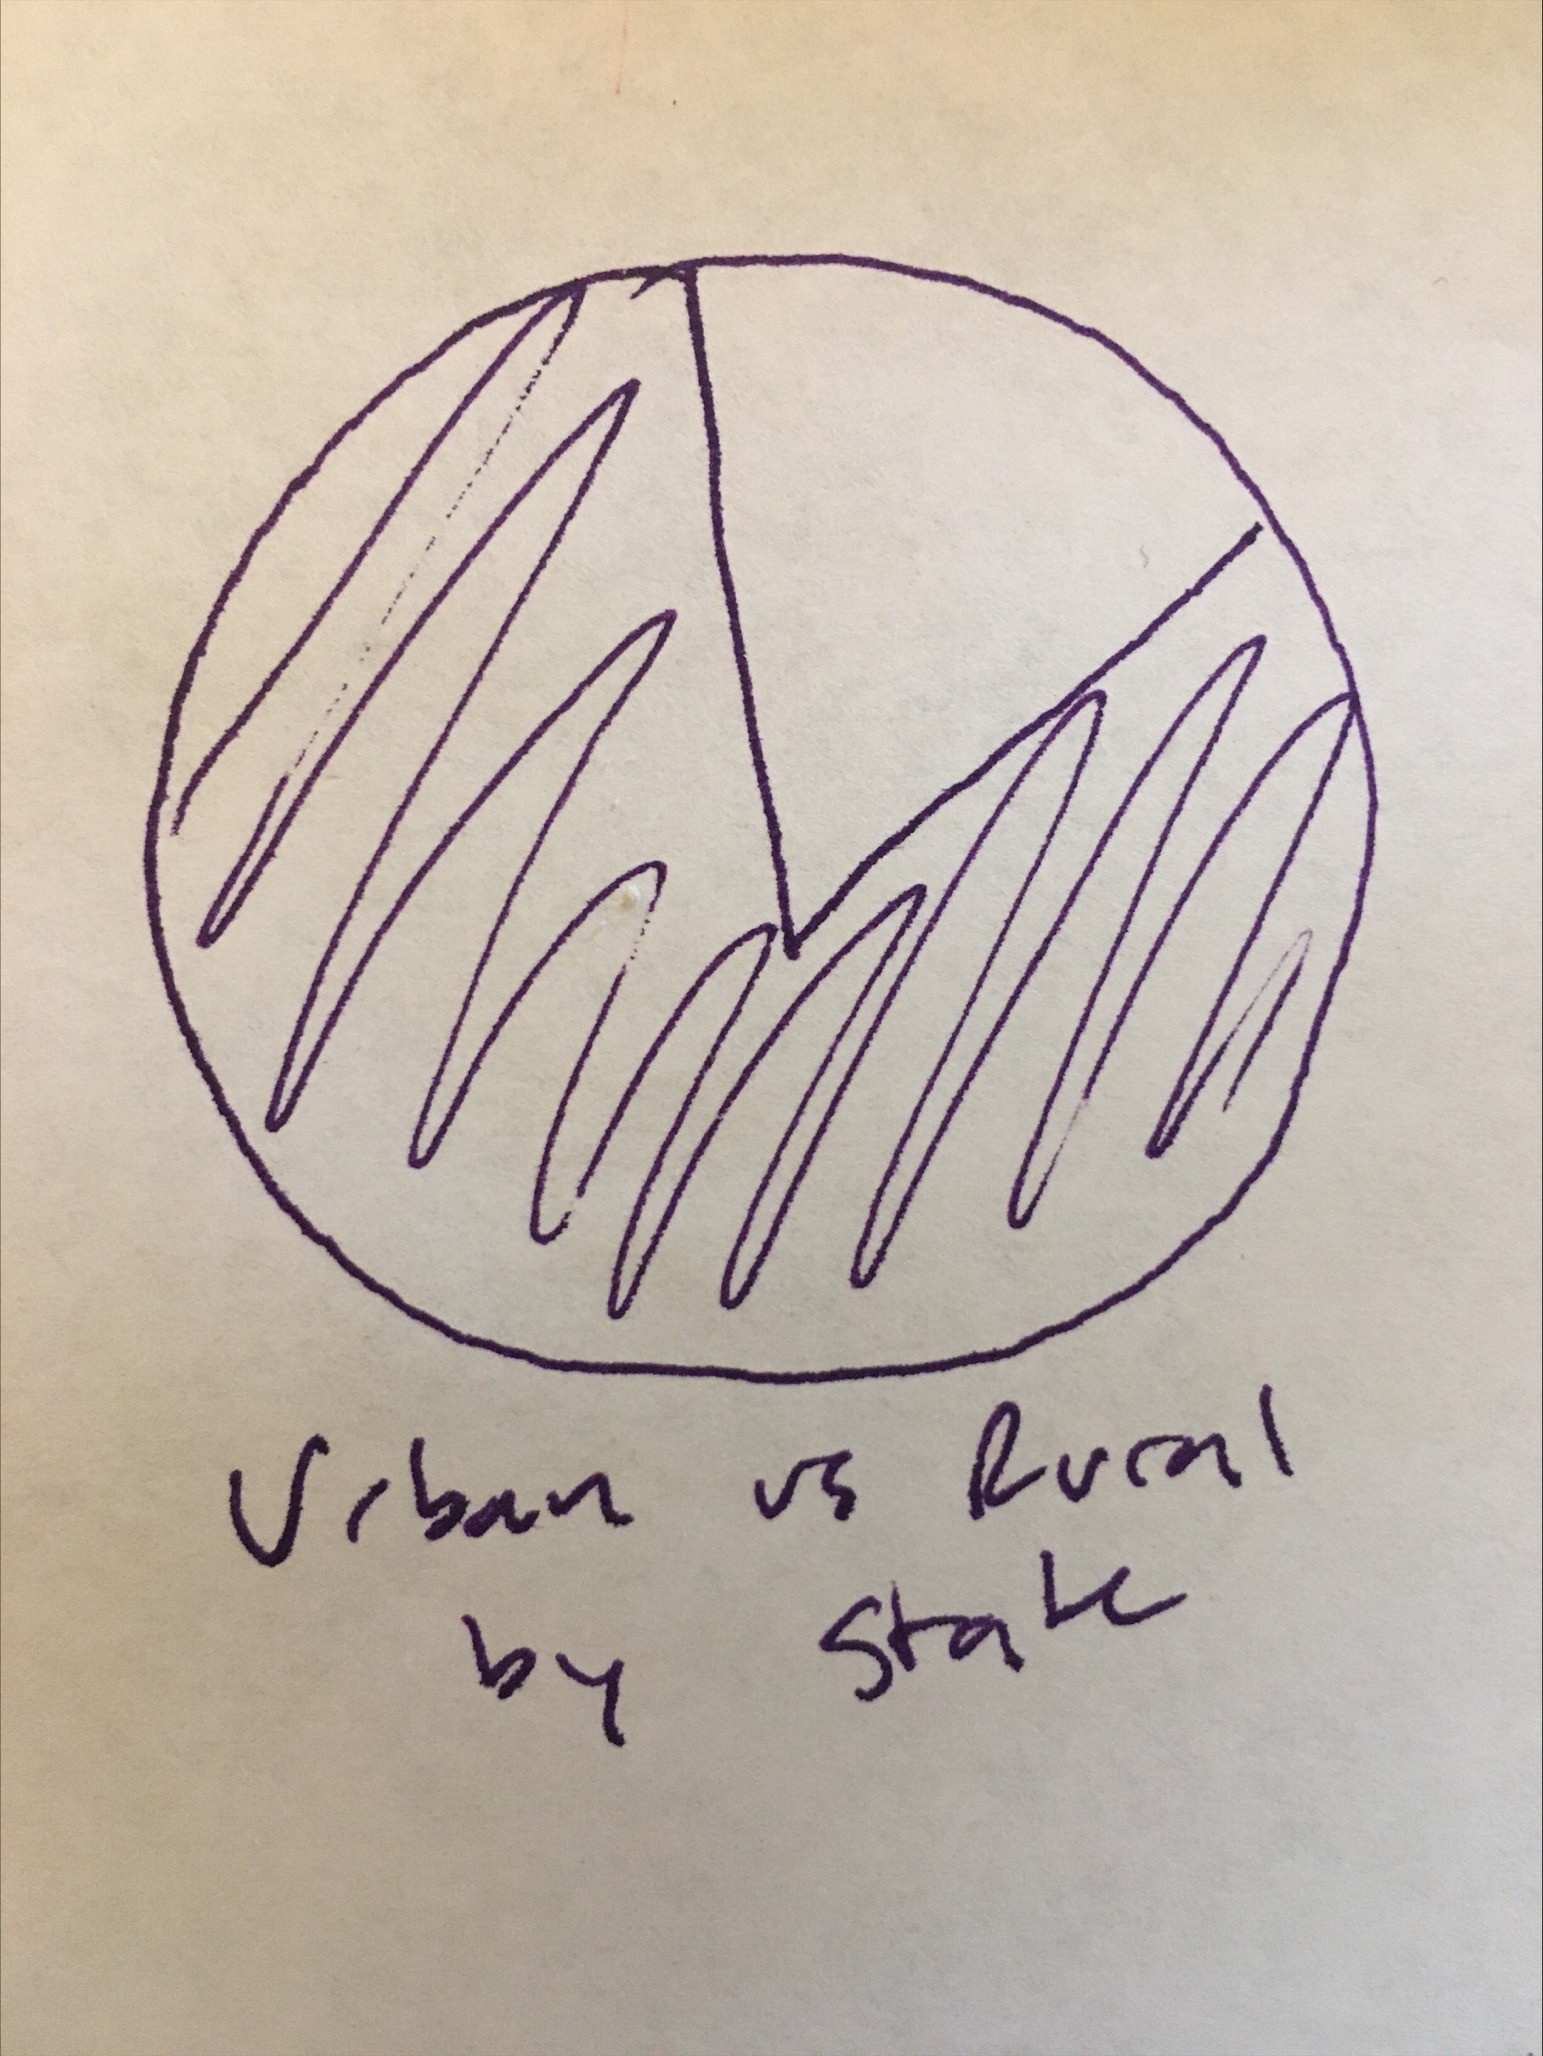 Urban vs Rural
by State